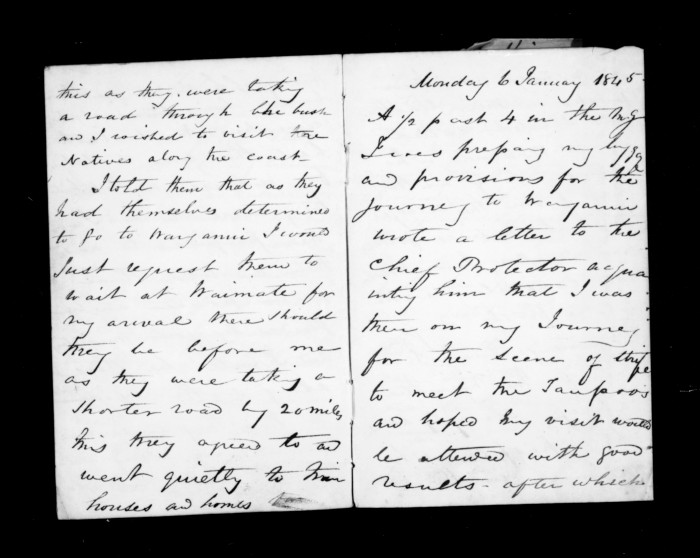 this as they were taking
a road through the bush
and I wished to visit the
Natives along the coast
I told them that as they
had themselves determined
to go to Wanganui I would
just request them to
wait at Waimate for
my arival there should
they be before me
as they were taking a
shorter road by 20 miles
this they agreed to and
went quietly to their
houses and homes
Monday 6 January 1845
A 1/2 past 4 in the mg
I was preparing my luggage
and provisions for the
Journey to Wanganui
wrote a letter to the
Chief Protector acqua
inting him that I was
then on my Journey
for the scene of strife
to meet the Taupoos
and hoped my visit would
be attended with good
results - after which